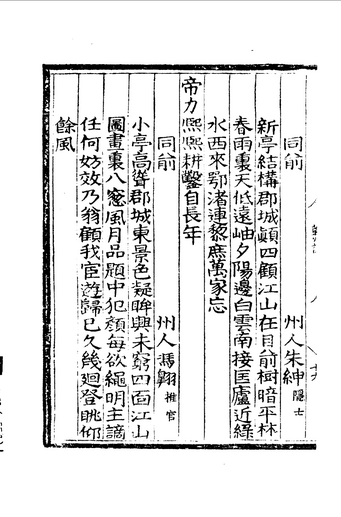 同前
州人朱紳隱士
新亭結構郡城巔四顧江山在目前樹暗平林
春雨裏天低遠岫夕陽邊白雲南接匡廬近綠
水西來鄂渚連黎庶萬家忘
帝力熙熙耕鑿自長年
同前
州人馮翱推官
小亭高聳郡城東景色凝眸興未窮四面江山
圖畫裏八窓風月品題中犯顏每欲繩明主謫
任何妨效乃翁顧我宦遊歸已久幾廻登眺仰
餘風